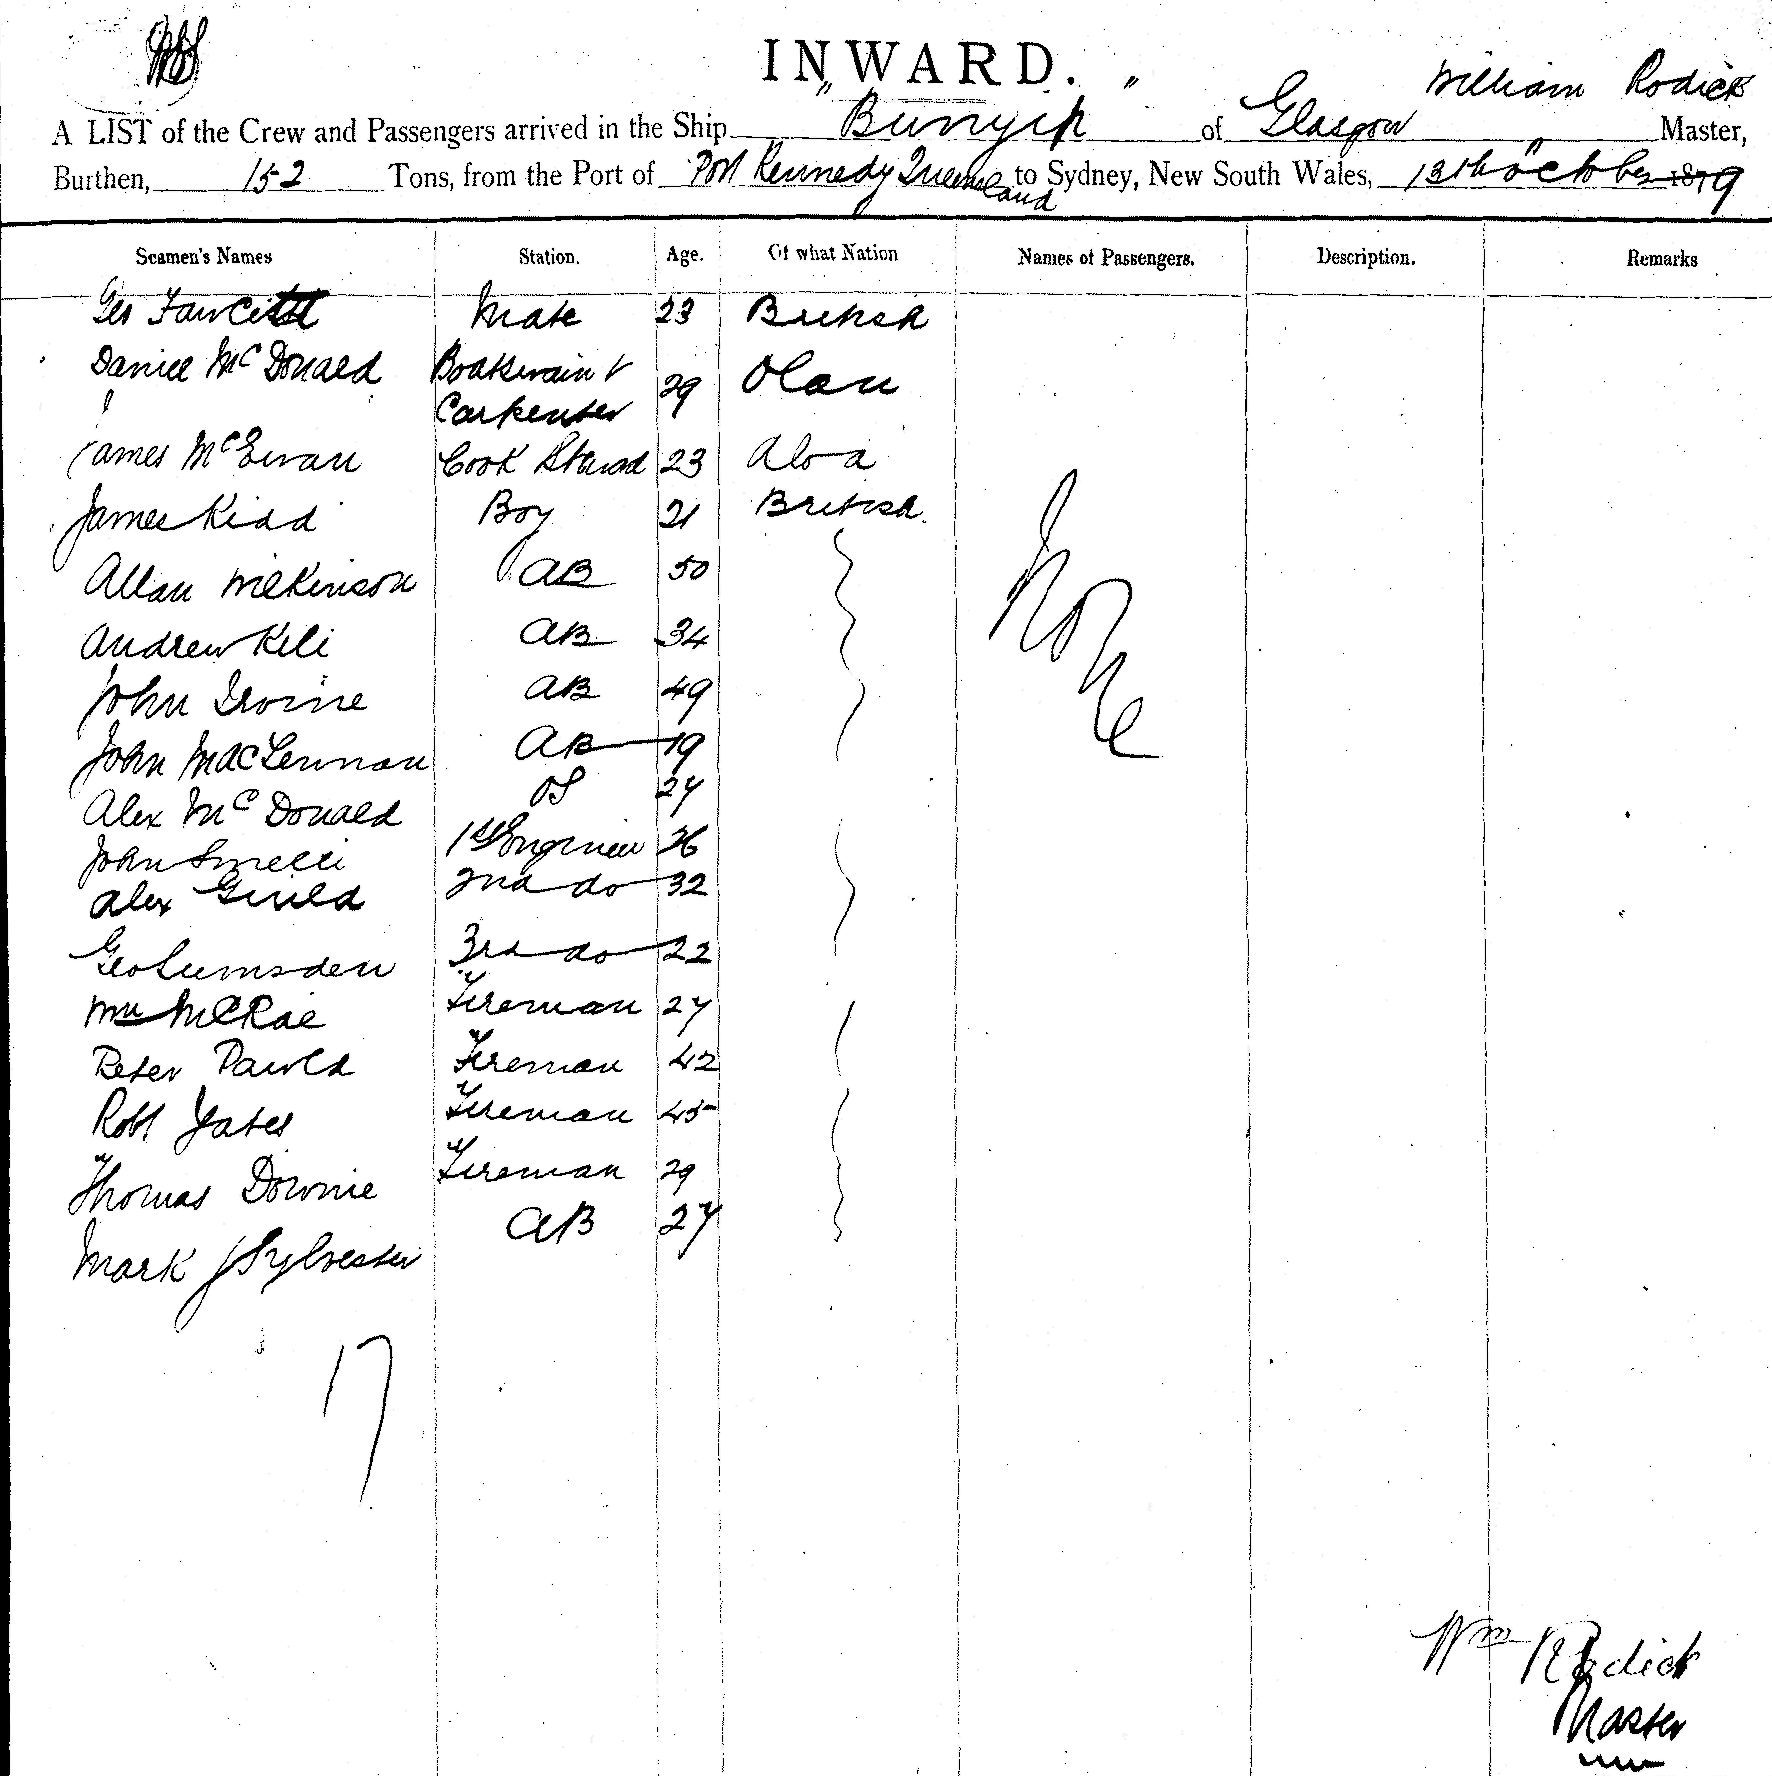 INWARD.
William Rodick
A LIST of the Crew and Passengers arrived in the Ship "Bunyip" of Glasgow Master,
Burthen, 152 Tons, from the Port of Port Kennedy Queensland to Sydney, New South Wales, 13th October 1879
Seamen's Names Station. Age. Of what Nation Names of Passengers. Description. Remarks
Geo Fawcett Mate 23 British
Daniel McDonald Boatswain + 29
Carpenter
James McEwan Cook Steward 23 Aloa
James Kidd Boy 21 British
None
Allan Wilkinson AB 50
Andrew Keli AB 34
John Irvine AB 49
John MacLennan AB 19
Alex McDonald OS 27
John Smelli 1st Engineer 26
Alex Guild 2nd do 32
Geo Lumsden 3rd do 22
Wm McRae Fireman 27
Peter Fireman 42
Robt Yates Fireman 45
Thomas Downie Fireman 29
Mark Sylvester AB 27
17
Wm Rodick
Master